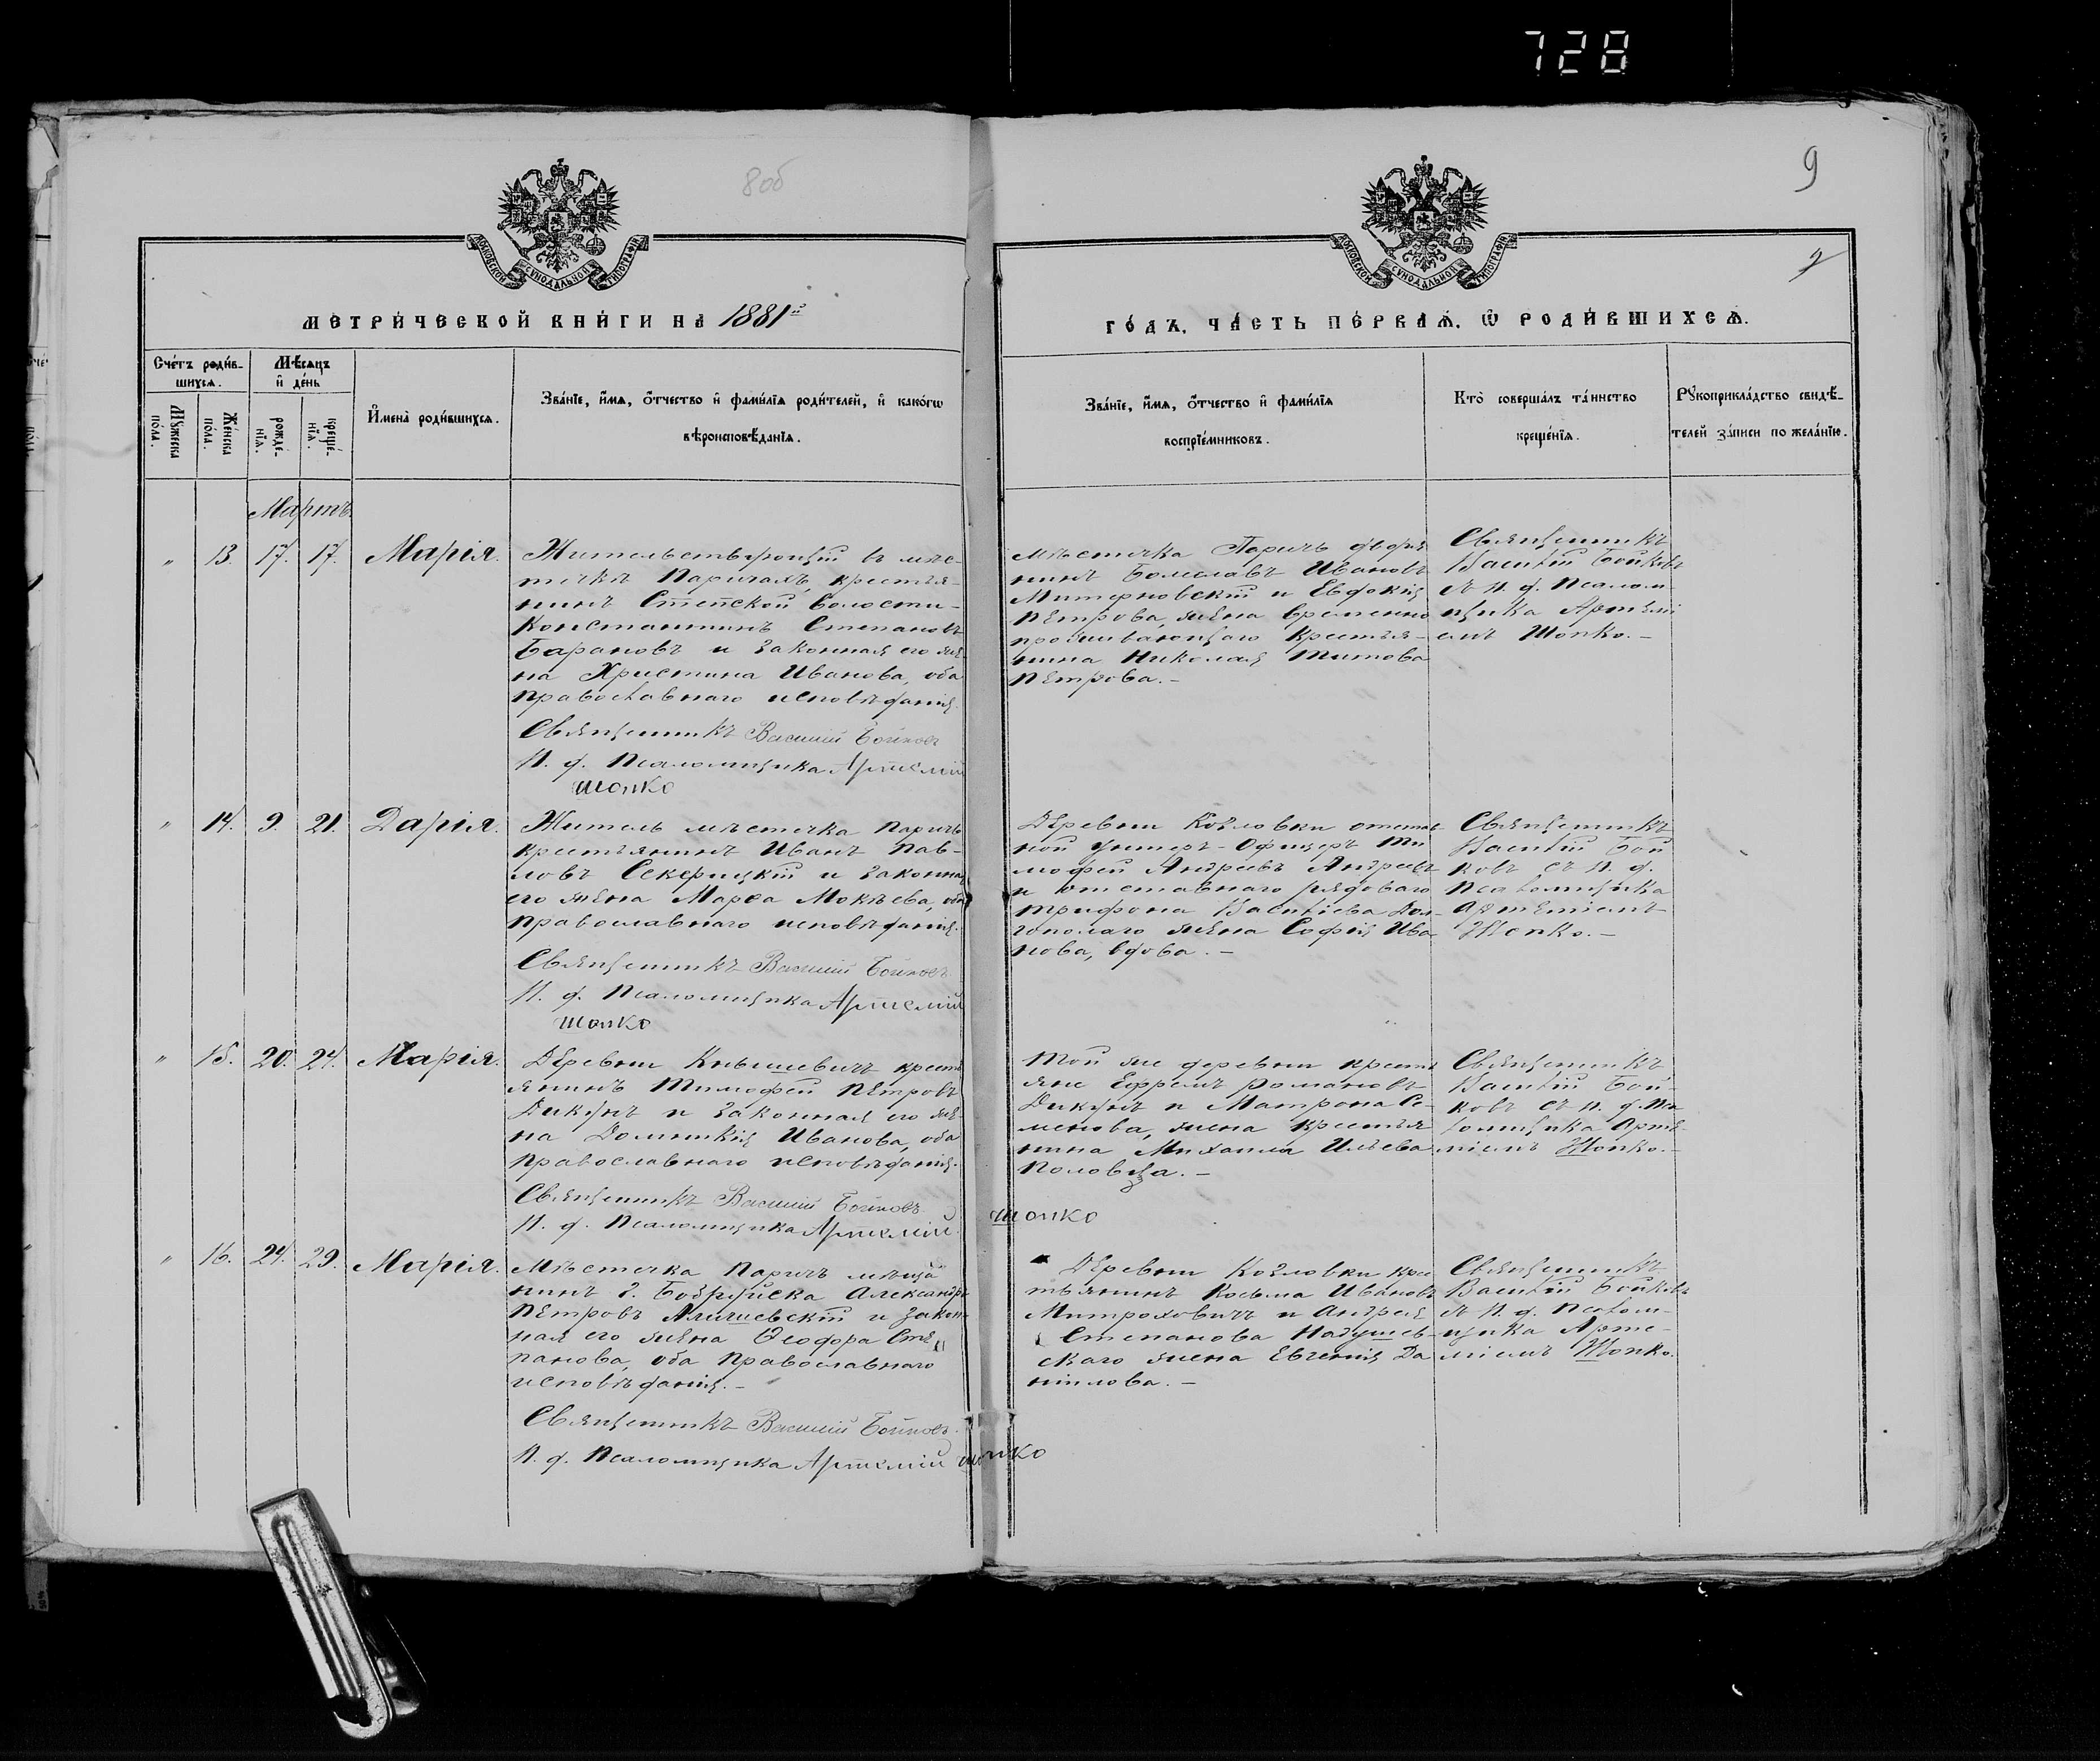 728
8об
9
МОСКОВСКОЙ СѴНОДАЛЬНОЙ ТИПОГРАФІИ
МОСКОВСКОЙ СѴНОДАЛЬНОЙ ТИПОГРАФІИ
МЕТРИ́ЧЕСКОЙ КНИ́ГИ НА 1881й
ГО́ДЪ, ЧА́СТЬ ПЕ́РВАѦ, Ѡ РОДИ́ВШИХСѦ.
Сче́тъ роди́в-
шихсѧ.
Мѣ́сѧцъ
и҆ де́нь
Мꙋ́жеска
по́ла.
Же́нска
по́ла.
рожде́-
нїѧ.
креще́-
нїѧ.
И҆мена̀ роди́вшихсѧ.
Зва́нїе, и҆́мѧ, ѻ҆́тчество и҆ фами́лїѧ роди́телей, и҆ како́гѡ
вѣроисповѣ́данїѧ.
Зва́нїе, и҆́мѧ, ѻ҆́тчество и҆ фами́лїѧ
воспрїе́мниковъ.
Кто̀ соверша́лъ та́инство
креще́нїѧ.
Рꙋкоприкла́дство свидѣ́-
телей за́писи по жела́нїю.
Мартъ.
" 13. 17. 17. Марія.
Жительствующій въ мѣс-
течкѣ Паричахъ, крестья-
нинъ Степской волости-
Константинъ Степановъ
Барановъ и законная его же-
на Христина Иванова, оба
православнаго исповѣданія.
Священникъ Василій Бойковъ
И. д. Псаломщика Артемій
Шопко
мѣстечка Паричъ дворя
нинъ Болеславъ Ивановъ
Митерновскій и Евдокія
Петрова, жена временно
проживающаго крестья-
нина Николая Титова
Петрова.-
Священникъ
Василій Бойковъ
съ и. д. псалом
щика Артемі
емъ Шопко.-
" 14. 9. 21. Дарія.
Житель мѣстечка Паричъ
крестьянинъ Иванъ Пав-
ловъ Секерицкій и законная
его жена Марѳа Мокѣева, оба
православнаго исповѣданія.
Священникъ Василій Бойковъ
И. д. Псаломщика Артемій
Шопко
Деревни Козловки отстав-
ной унтеръ-офицеръ Ти
мофей Андреевъ Андреевъ
и отставнаго рядоваго
Трифона Васильева Дол-
гополаго жена Софія Ива
нова, вдова.-
Священникъ
Василій Бой
ковъ съ и. д.
псаломщика
Артеміемъ
Шопко.-
" 15. 20. 24. Марія.
Деревни Кнышевичъ кресть
янинъ Тимофей Петровъ
Дикунъ и законная его же
на Домникія Иванова, оба
православнаго исповѣданія.
Священникъ Василій Бойковъ
И. д. Псаломщика Артемій Шопко
Той же деревни кресть
яне Ефремъ Романовъ
Дикунъ и Матрона Се-
менова, жена крестья
нина Михаила Ильева
Половца.-
Священникъ
Василій Бой-
ковъ съ и. д. Пса
ломщика Арте-
міемъ Шопко.-
" 16. 24. 29. Марія.
Мѣстечка Паричъ мѣща
нинъ г. Бобруйска Александръ
Петровъ Аличевскій и закон-
ная его жена Ѳеодора Сте
панова, оба православнаго
исповѣданія.-
Священникъ Василій Бойковъ
И. д. Псаломщика Артемій Шопко
Деревни Козловки крес
тьянинъ Косьма Ивановъ
Митроховичъ и Андрея
Степанова Надушев-
скаго жена Евгенія Да
ниилова.-
Священникъ
Василій Бойковъ
съ и. д. псалом-
щика Арте-
міемъ Шопко.